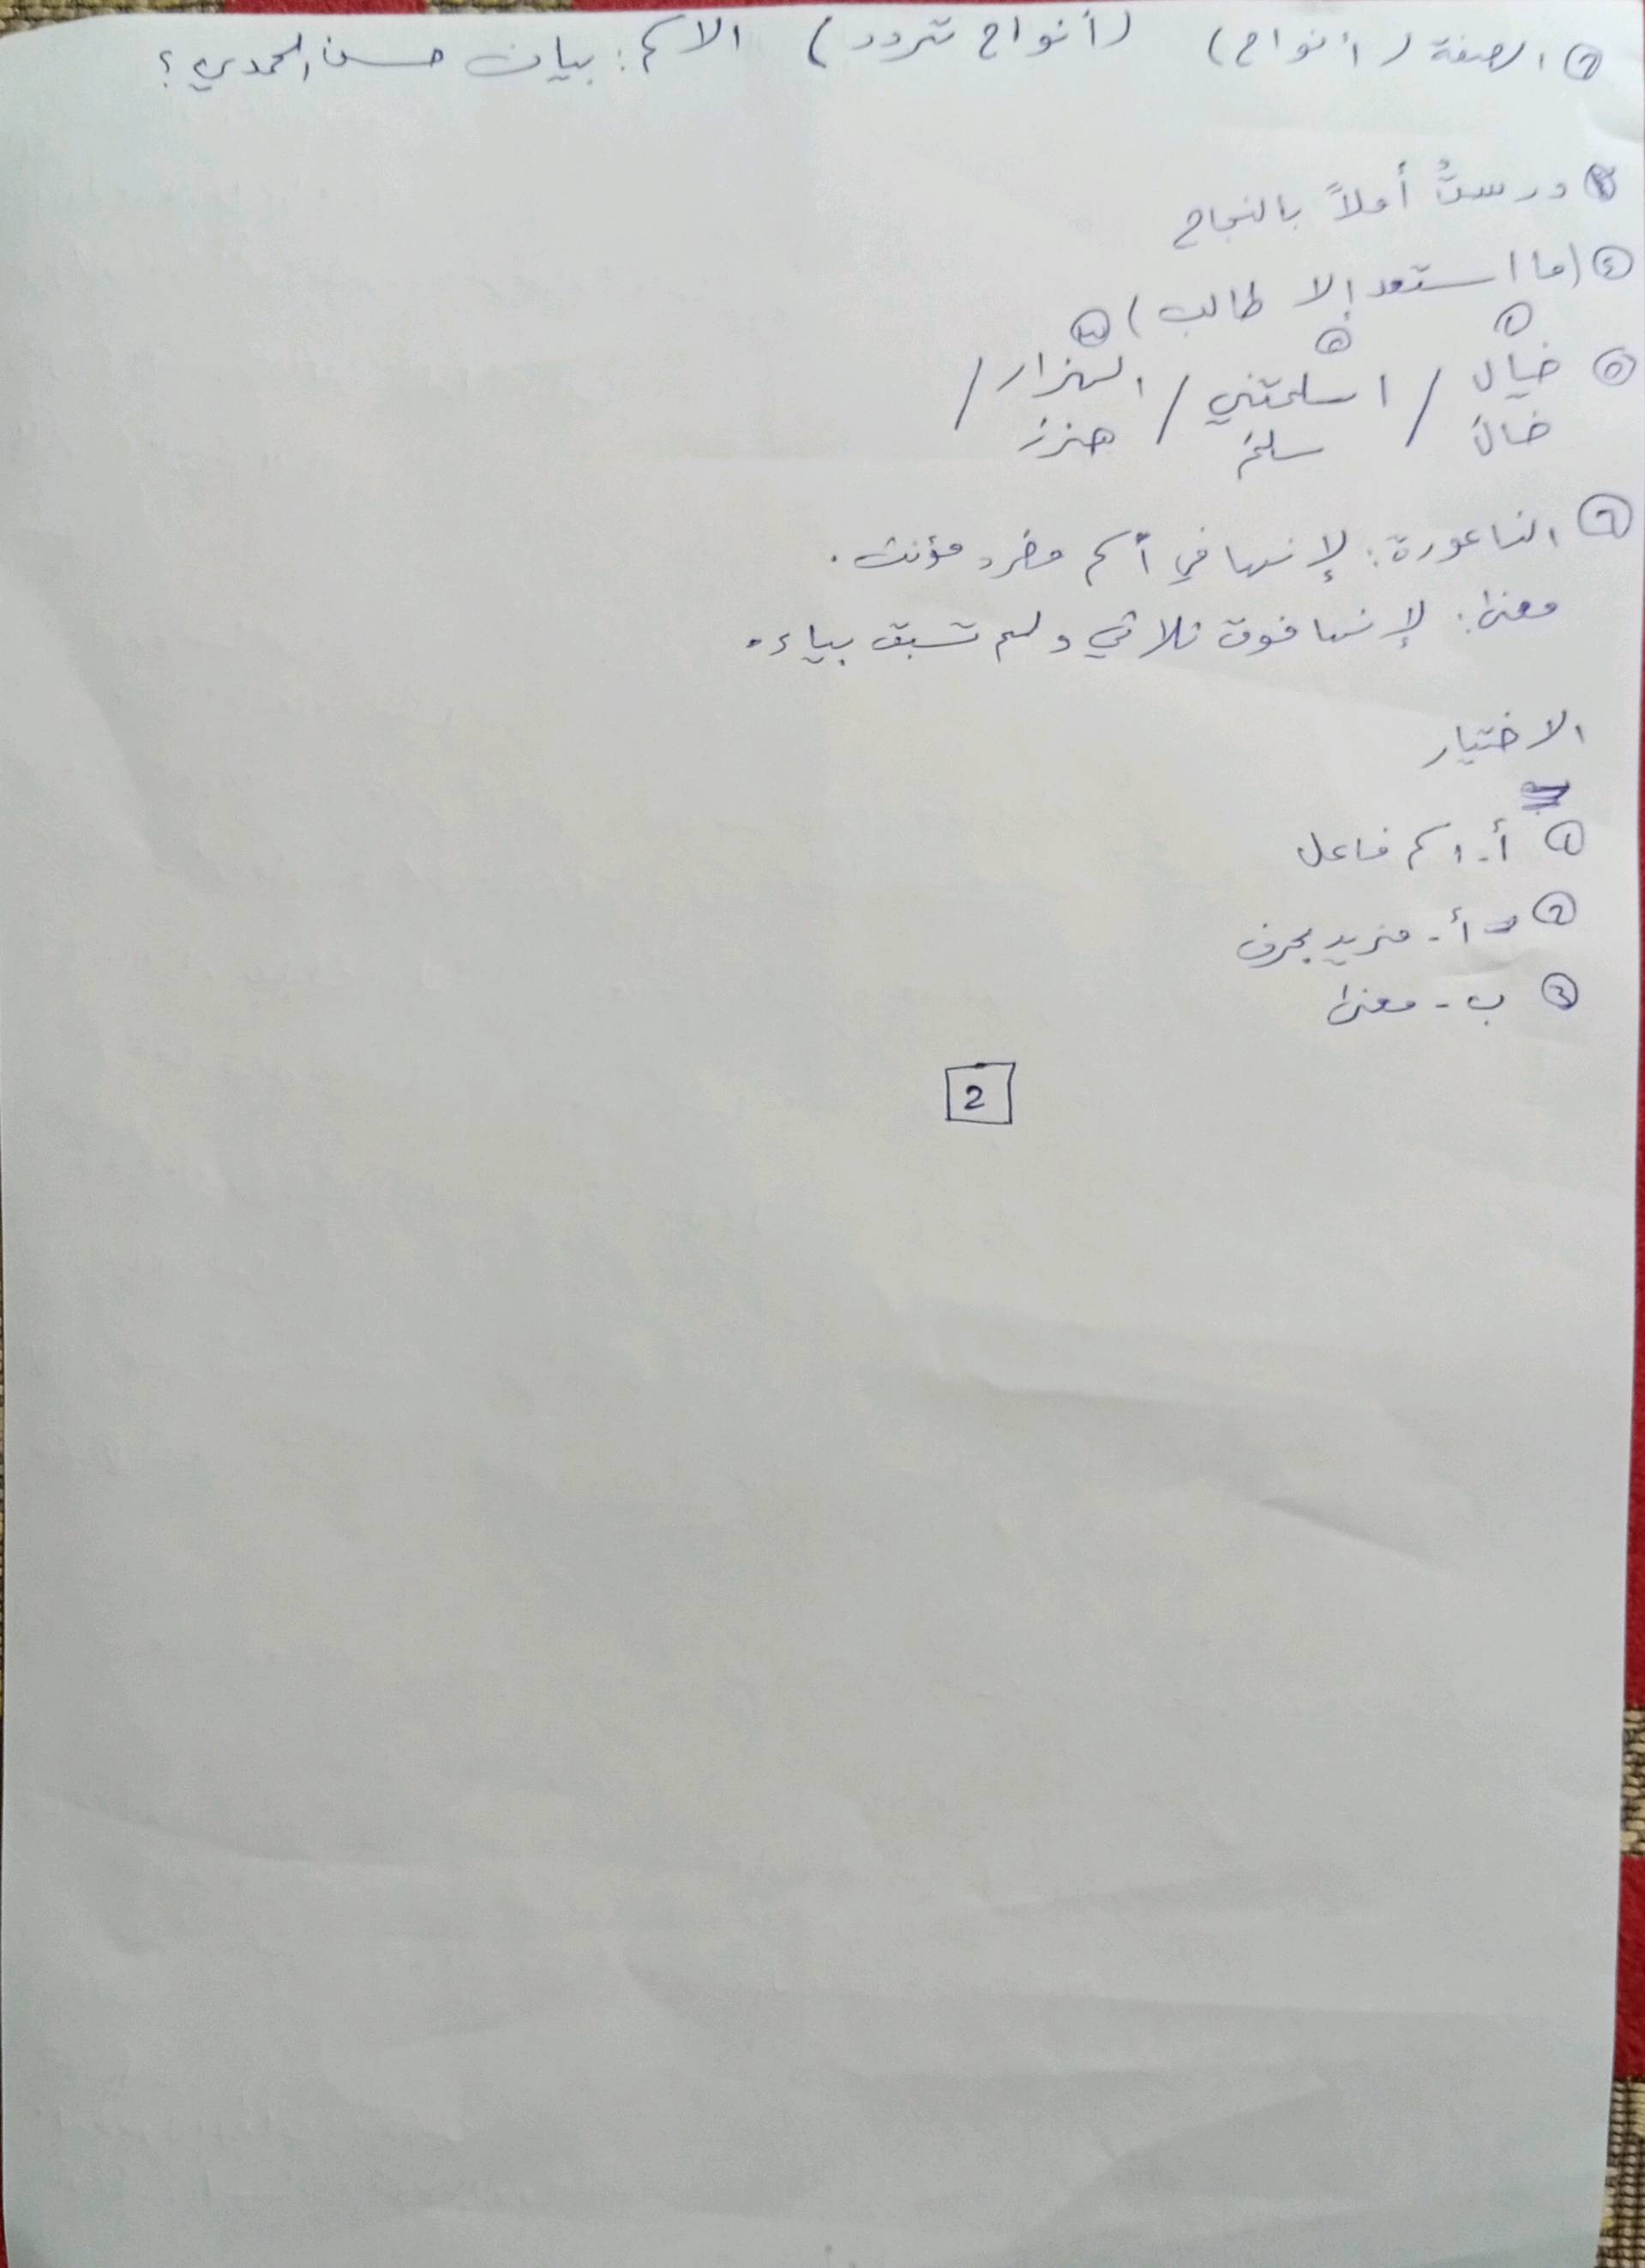 ② الصفة (أنواح) (أنواح تتردد) الاسم: بيان حسن المحمدي؟
③ درستُ أملاً بالنجاح
④ (ما استعد إلا طالب)
① ② ③
⑤ خيال / اسلمتني / الهزار /
خال سلم هزر
⑥ الناعورة: لإنها في أسم مفرد مؤنث.
معنى: لإنها فوق ثلاثي ولم تسبق بياء.
الاختيار
① أ- اسم فاعل
② أ- مزيد بحرف
③ ب- معنى
2